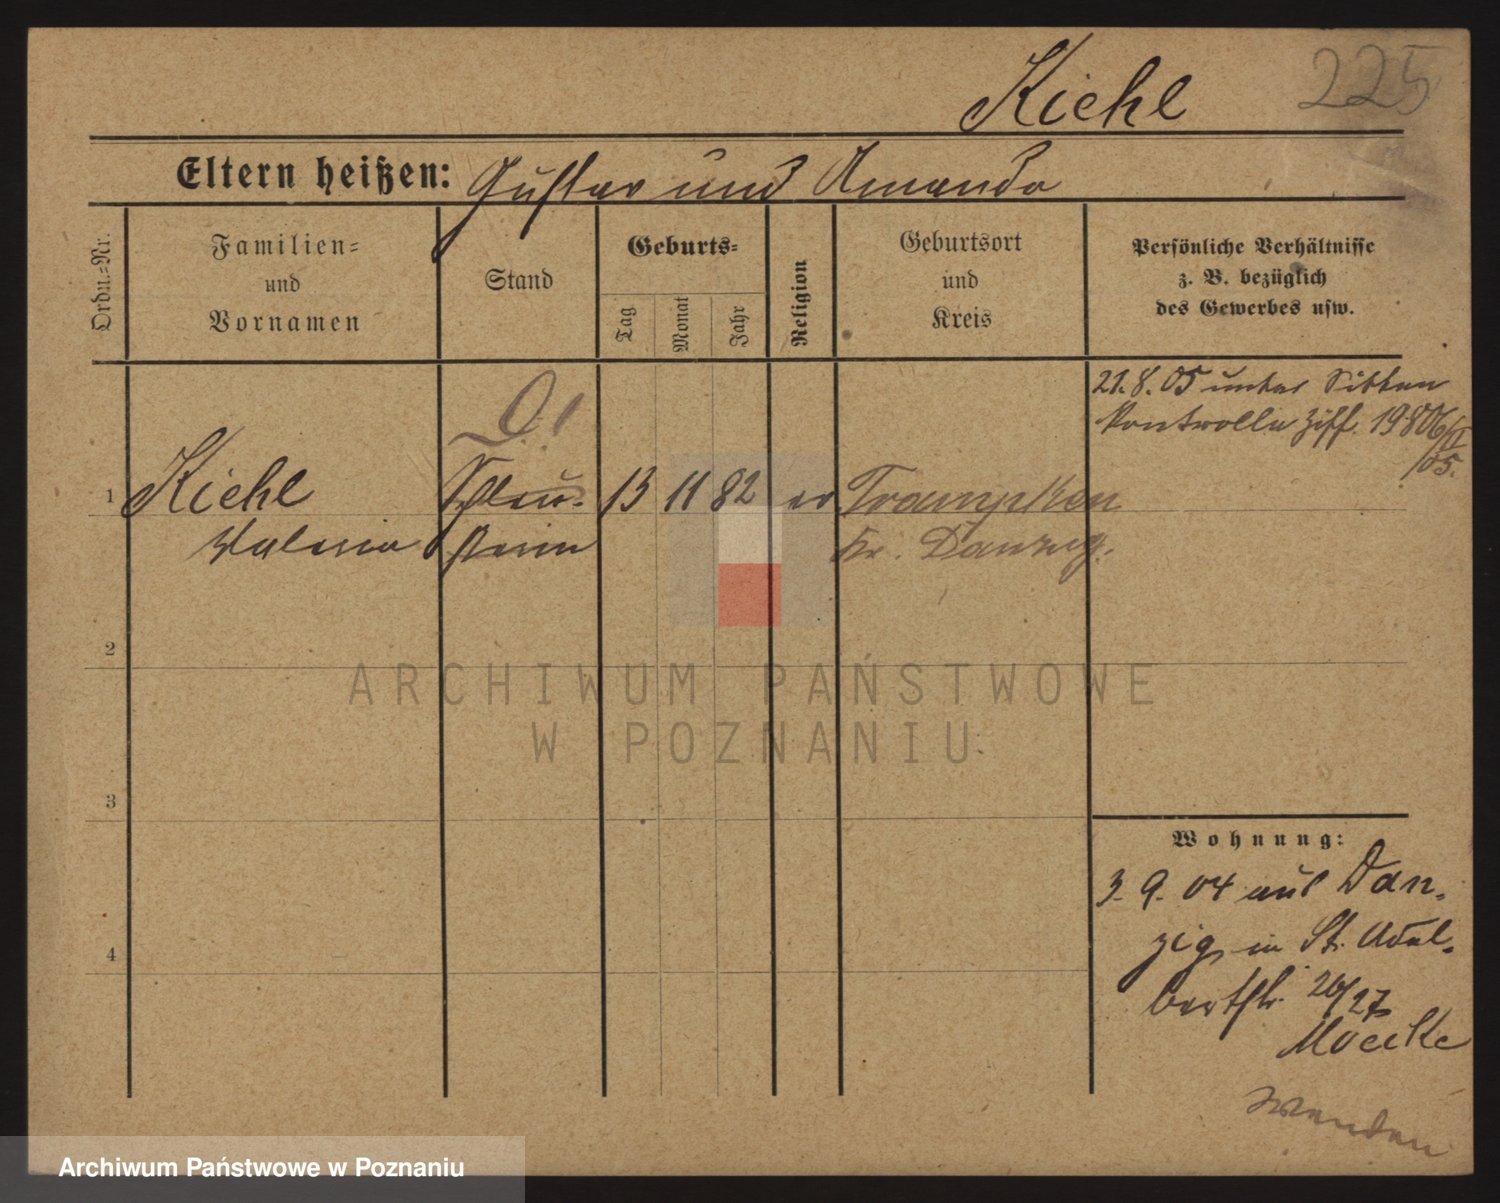 225
Kiehl
Eltern heißen: Gustav und Amanda
Ordn.-Nr.
Familien- und Vornamen
Stand
Geburts-
Tag
Monat
Jahr
Religion
Geburtsort und Kreis
Persönliche Verhältnisse z. B. bezüglich des Gewerbes usw.
21. 8. 05 unter Sitten
kontrolle Ziff. 19806/II
/05.
D!
1 Kiehl 13 11 82 ev Trampken
Valeria Kr. Danzig.
2
3
4
Wohnung:
3. 9. 04 aus Dan-
zig, in St. Adal-
bertstr. 26/27
Moecke
wenden
ARCHIWUM PAŃSTWOWE
W POZNANIU
Archiwum Państwowe w Poznaniu